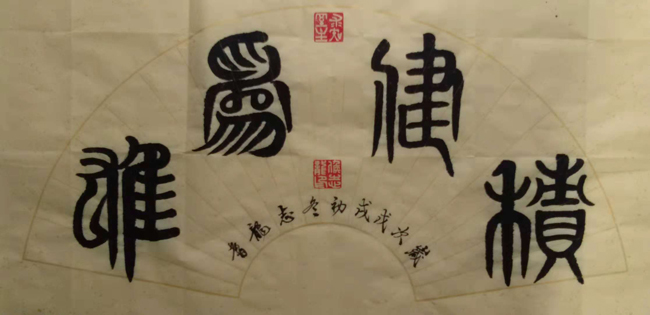 積健爲雄
歲次戊戌初冬志福書